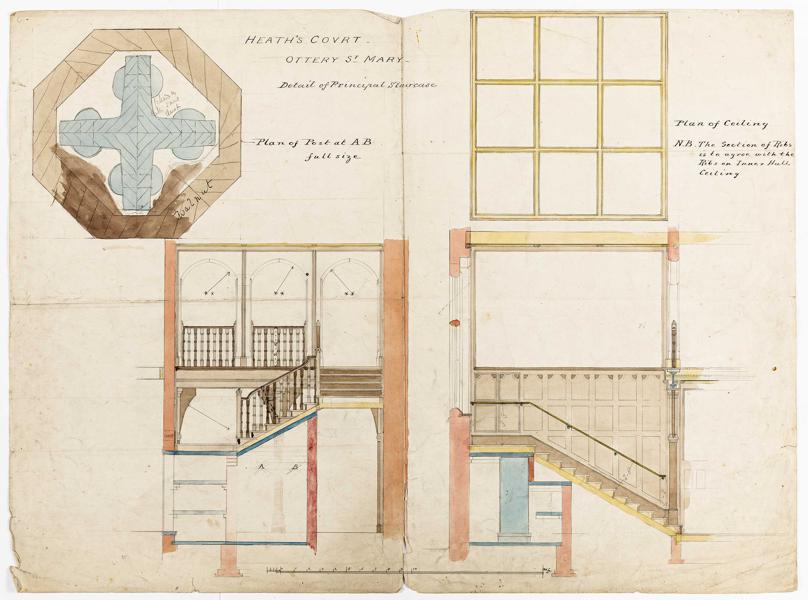 HEATH'S COVRT.
OTTERY ST MARY.
Detail of Principal Staircase
Plan of Post at A B
full size
Walnut
Plan of Ceiling
N.B. The Section of Ribs
is to agree with the
Ribs on Inner Hall
Ceiling
A B